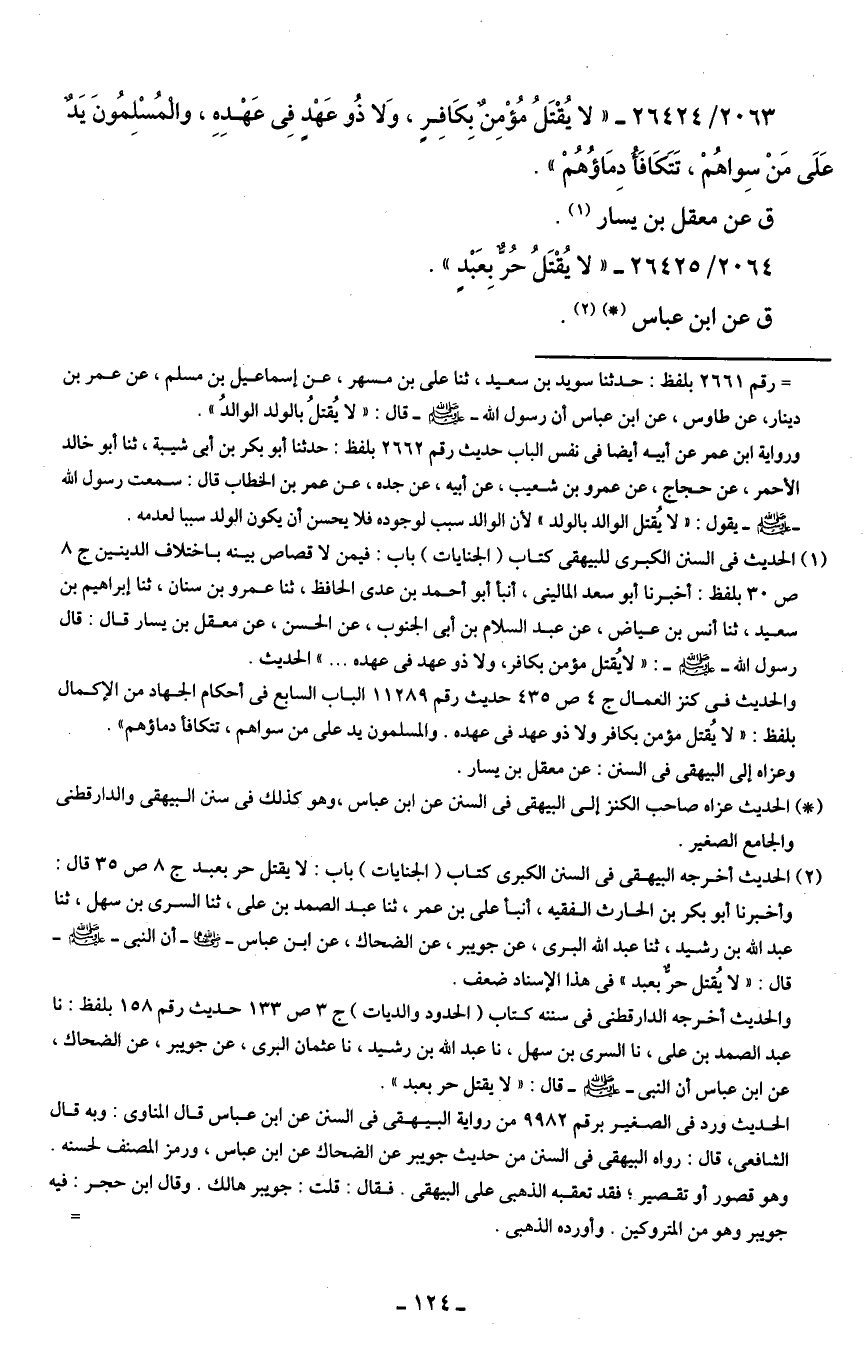 ٢٠٦٣/ ٢٦٤٢٤ ـ « لا يُقْتَلُ مُؤْمِنٌ بِكَافِرٍ ، وَلا ذُو عَهْدٍ فِى عَهْدِهِ ، والْمُسْلِمُونَ يَدٌ
عَلَى مَنْ سِواهُمْ ، تَتَكَافَأُ دِمَاؤُهُمْ » .
ق عن معقل بن يسار (١) .
٢٠٦٤/ ٢٦٤٢٥ ـ « لا يُقْتَلُ حُرٌّ بِعَبْدٍ » .
ق عن ابن عباس (*) (٢) .
= رقم ٢٦٦١ بلفظ : حدثنا سويد بن سعيد ، ثنا على بن مسهر ، عن إسماعيل بن مسلم ، عن عمر بن
دينار، عن طاوس ، عن ابن عباس أن رسول الله ـ ﷺ ـ قال : « لا يُقتلُ بالولد الوالدُ » .
ورواية ابن عمر عن أبيه أيضا فى نفس الباب حديث رقم ٢٦٦٢ بلفظ : حدثنا أبو بكر بن أبى شيبة ، ثنا أبو خالد
الأحمر ، عن حجاج ، عن عمرو بن شعيب ، عن أبيه ، عن جده ، عن عمر بن الخطاب قال : سمعت رسول الله
ـ ﷺ ـ يقول : « لا يُقتل الوالد بالولد » لأن الوالد سبب لوجوده فلا يحسن أن يكون الولد سببا لعدمه .
(١) الحديث فى السنن الكبرى للبيهقى كتاب ( الجنايات ) باب : فيمن لا قصاص بينه باختلاف الدينين ج ٨
ص ٣٠ بلفظ : أخبرنا أبو سعد المالينى ، أنبأ أبو أحمد بن عدى الحافظ ، ثنا عمرو بن سنان ، ثنا إبراهيم بن
سعيد ، ثنا أنس بن عياض ، عن عبد السلام بن أبى الجنوب ، عن الحسن ، عن معقل بن يسار قال : قال
رسول الله ـ ﷺ ـ : « لايُقتل مؤمن بكافر، ولا ذو عهد فى عهده ... » الحديث .
والحديث فى كنز العمال ج ٤ ص ٤٣٥ حديث رقم ١١٢٨٩ الباب السابع فى أحكام الجهاد من الإكمال
بلفظ : « لا يُقتل مؤمن بكافر ولا ذو عهد فى عهده . والمسلمون يد على من سواهم ، تتكافأ دماؤهم» .
وعزاه إلى البيهقى فى السنن : عن معقل بن يسار .
(*) الحديث عزاه صاحب الكنز إلى البيهقى فى السنن عن ابن عباس ،وهو كذلك فى سنن البيهقى والدارقطنى
والجامع الصغير .
(٢) الحديث أخرجه البيهقى فى السنن الكبرى كتاب ( الجنايات ) باب : لا يقتل حر بعبد ج ٨ ص ٣٥ قال :
وأخبرنا أبو بكر بن الحارث الفقيه ، أنبأ على بن عمر ، ثنا عبد الصمد بن على ، ثنا السرى بن سهل ، ثنا
عبد الله بن رشيد ، ثنا عبد الله البرى ، عن جويبر ، عن الضحاك ، عن ابن عباس ـ رضي الله عنهما ـ أن النبى ـ ﷺ ـ
قال : « لا يُقتل حرٌّ بعبد » فى هذا الإسناد ضعف .
والحديث أخرجه الدارقطنى فى سننه كتاب ( الحدود والديات ) ج ٣ ص ١٣٣ حديث رقم ١٥٨ بلفظ : نا
عبد الصمد بن على ، نا السرى بن سهل ، نا عبد الله بن رشيد ، نا عثمان البرى ، عن جويبر ، عن الضحاك ،
عن ابن عباس أن النبى ـ ﷺ ـ قال : « لا يقتل حر بعبد » .
الحديث ورد فى الصغير برقم ٩٩٨٢ من رواية البيهقى فى السنن عن ابن عباس قال المناوى : وبه قال
الشافعى، قال : رواه البيهقى فى السنن من حديث جويبر عن الضحاك عن ابن عباس ، ورمز المصنف لحسنه .
وهو قصور أو تقصير ؛ فقد تعقبه الذهبى على البيهقى . فقال : قلت : جويبر هالك . وقال ابن حجر : فيه
جويبر وهو من المتروكين . وأورده الذهبى . =
ـ ١٢٤ ـ